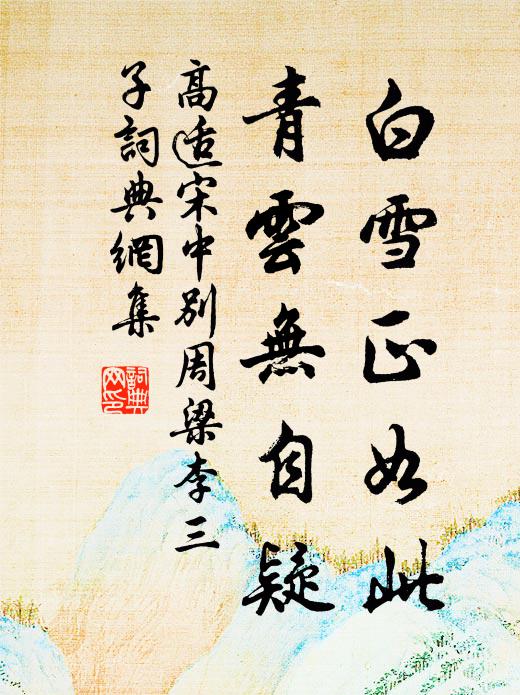 白雪正如此
青雲無自疑
高适宋中別周梁李三
子詞典網集
詞典
网印